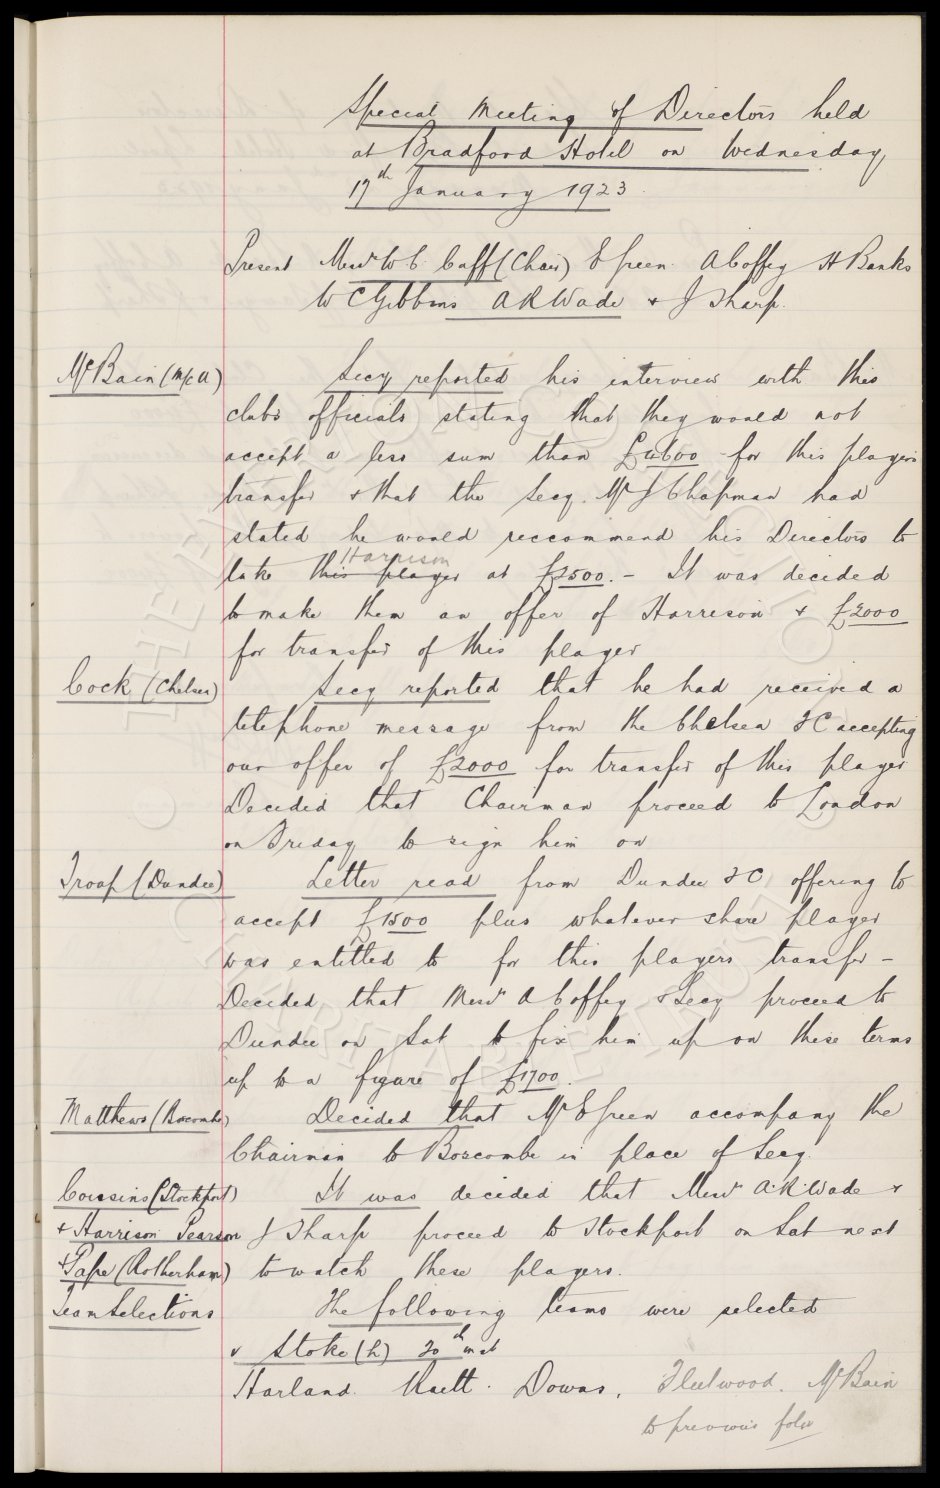 Special Meeting of Directors held
at Bradford Hotel on Wednesday
17th January 1923
Present Messrs W C Cuff (Chair) E Green A Coffey H Banks
W C Gibbins A R Wade & J Sharp.
McBain (M/c U) Secy reported his interview with this
clubs officials stating that they would not
accept a less sum than £4600 for this players
transfer & that the Secy. Mr J Chapman had
stated he would reccommend his Directors to
Harrison
take this player at £2500. - It was decided
to make them an offer of Harrison & £2000
for transfer of this player
Cock (Chelsea) Secy reported that he had received a
telephone message from the Chelsea FC accepting
our offer of £2000 for transfer of this player
Decided that Chairman proceed to London
on Friday to sign him on
Troup (Dundee) Letter read from Dundee FC offering to
accept £1500 plus whatever share player
was entitled to for this players transfer -
Decided that Messrs A Coffey & Secy proceed to
Dundee on Sat to fix him up on these terms
up to a figure of £1700.
Matthews (Boscombe) Decided that Mr E Green accompany the
Chairman to Boscombe in place of Secy.
Coussins (Stockport) It was decided that Messrs A.R. Wade &
& Harrison Pearson J Sharp proceed to Stockport on Sat next
& Pape (Rotherham) to watch these players.
Team Selections The following teams were selected
v Stoke (h) 20th inst
Harland. Raitt. Downs. Fleetwood. McBain
to previous folio